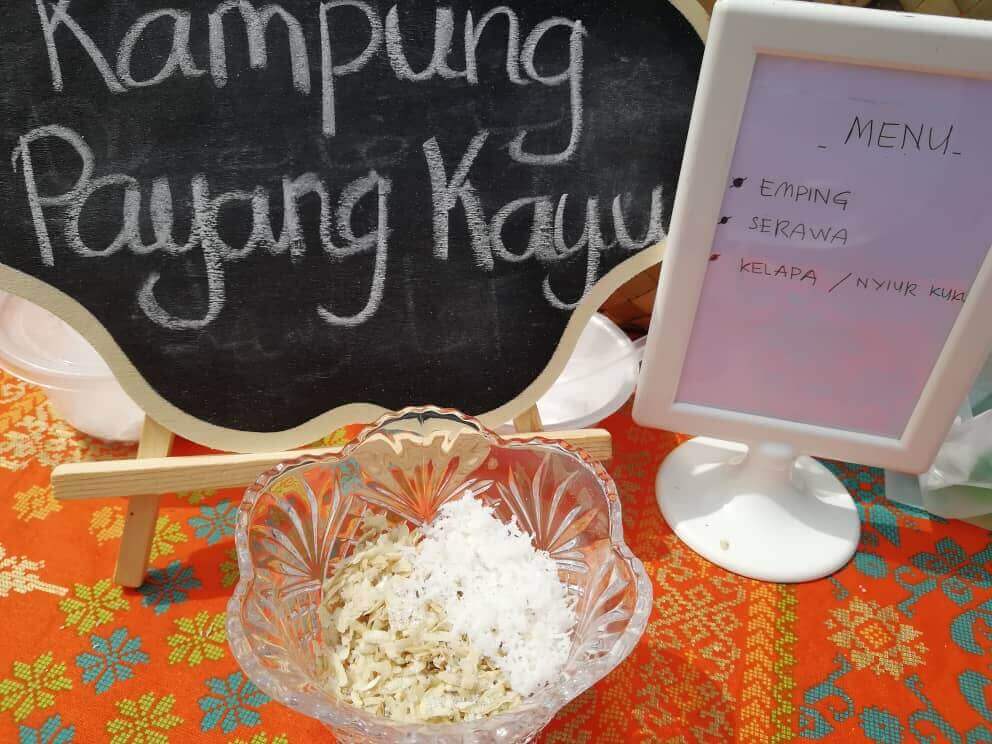 Kampung
Payang Kayu
- MENU -
EMPING
SERAWA
KELAPA / NYIUR KUKU